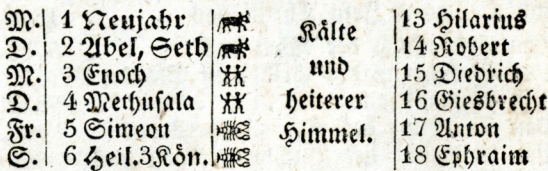 M. 1 Neujahr Kälte 13 Hilarius
D. 2 Abel, Seth und 14 Robert
M. 3 Enoch heiterer 15 Diedrich
D. 4 Methusala Himmel. 16 Giesbrecht
Fr. 5 Simeon 17 Anton
S. 6 Heil.3Kön. 18 Ephraim